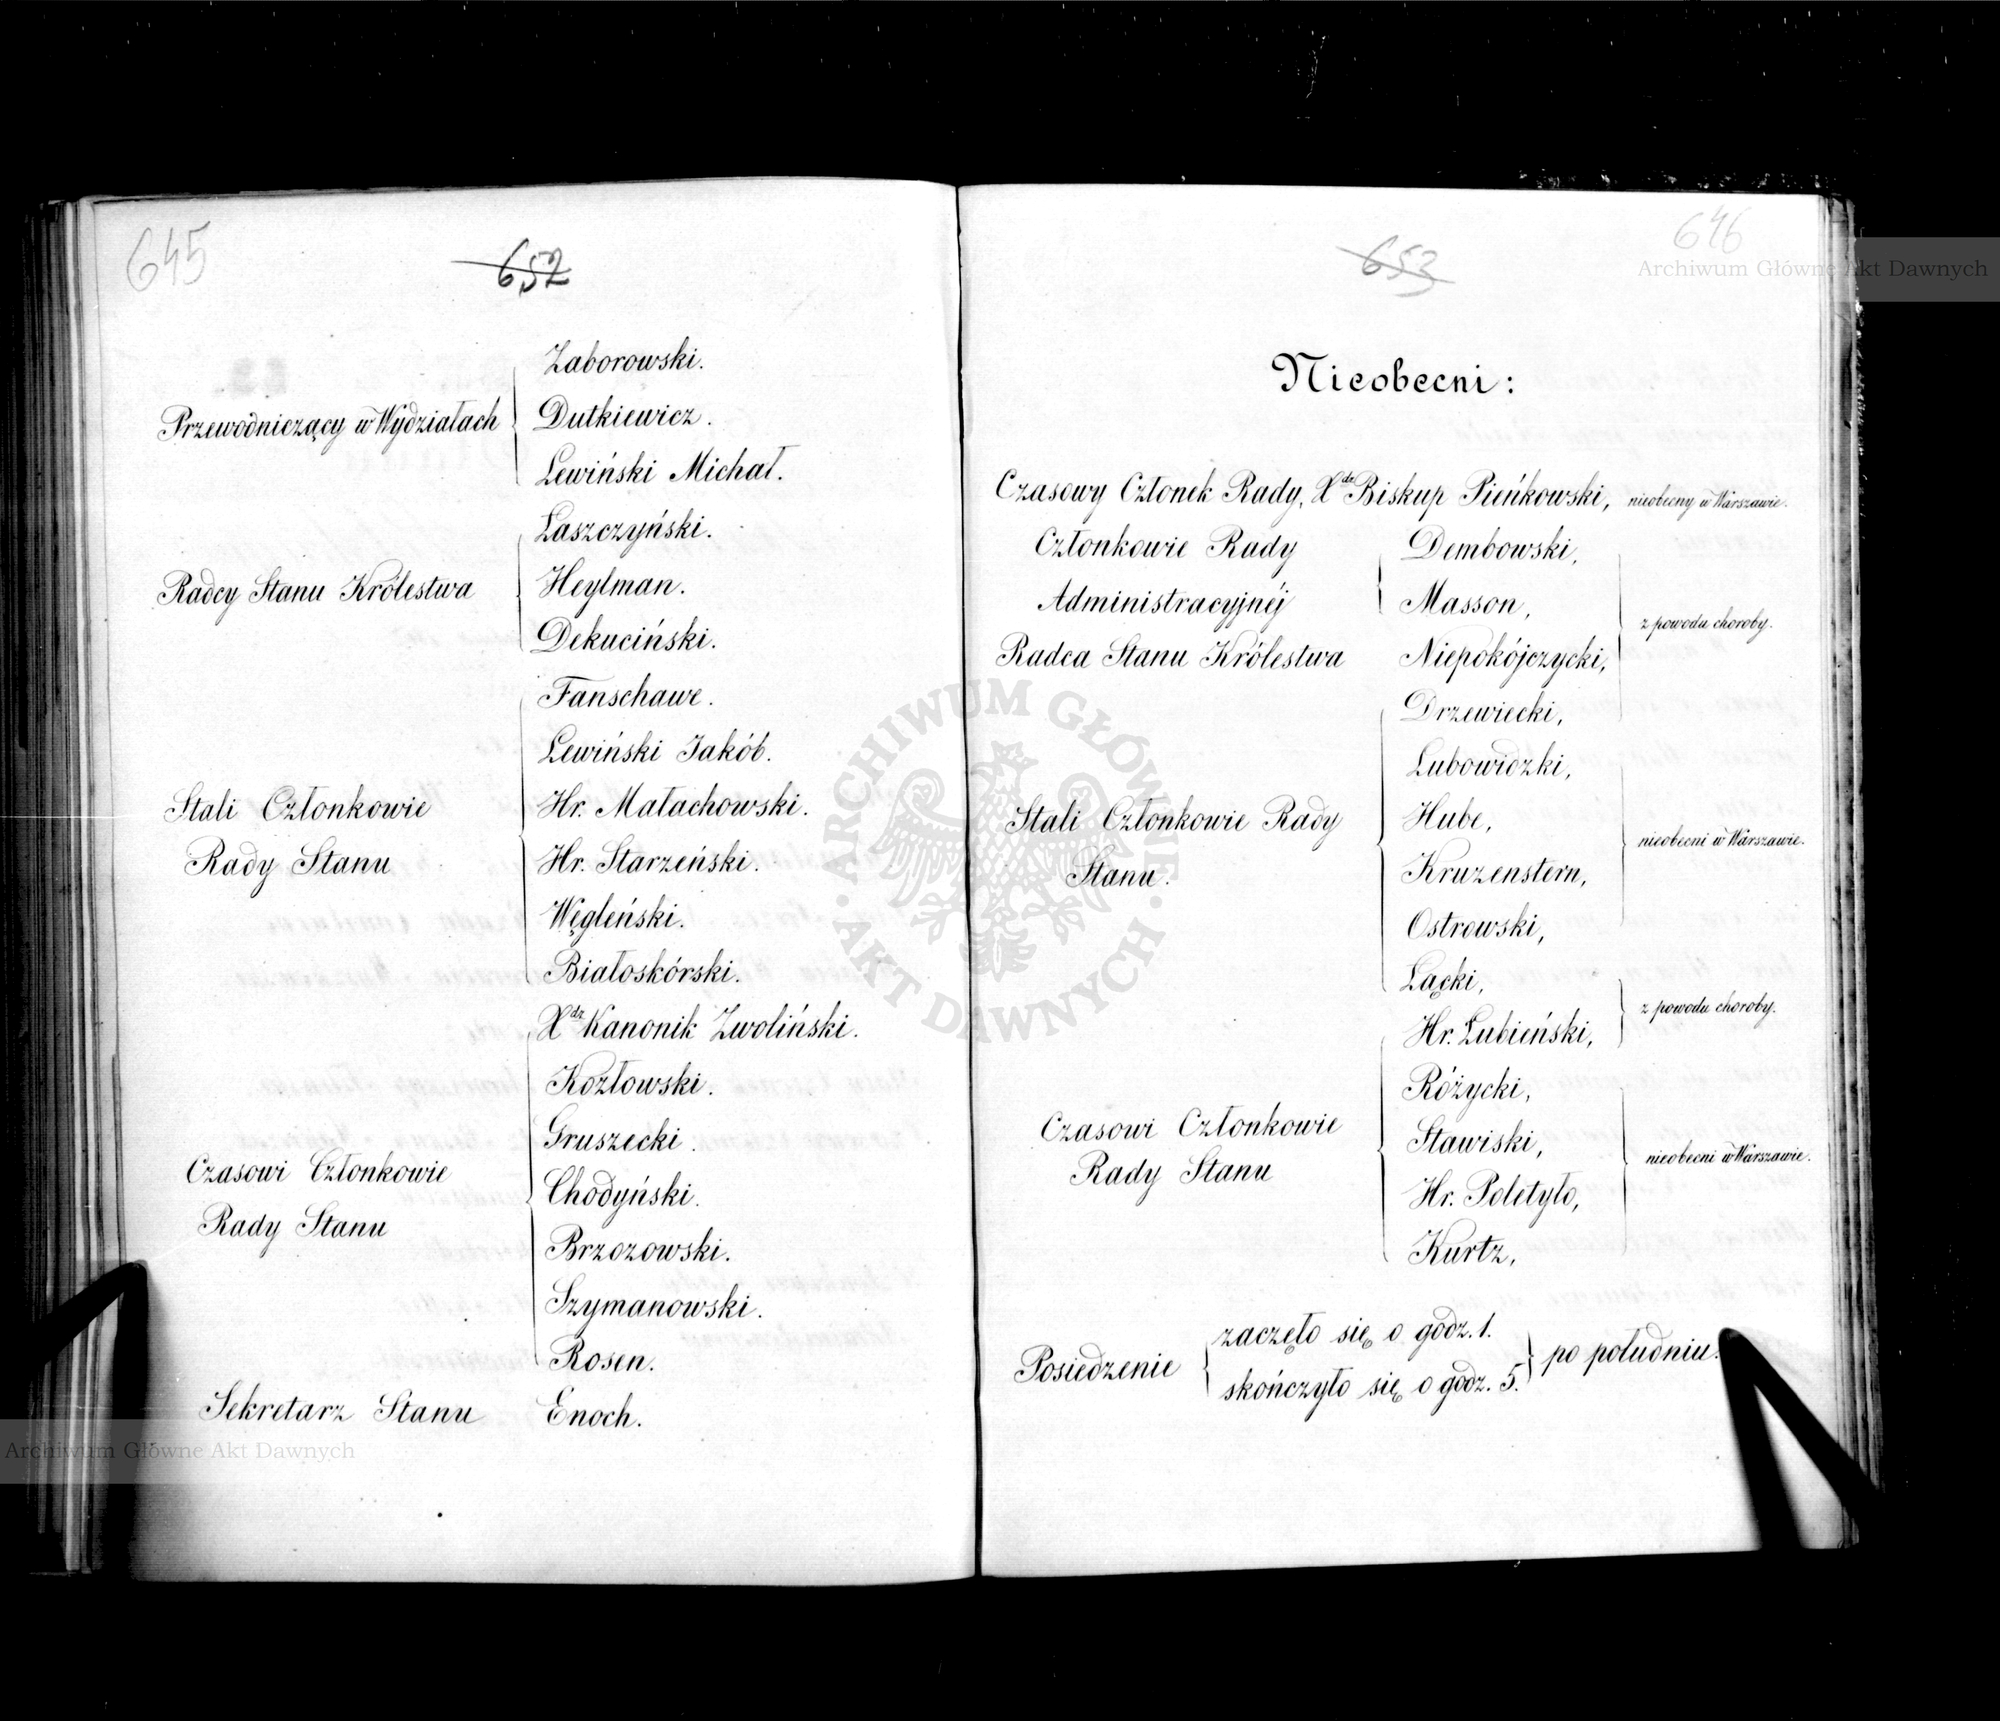 645
652
Zaborowski.
Przewodniczący w Wydziałach
Dutkiewicz.
Lewiński Michał.
Łaszczyński.
Radcy Stanu Królestwa
Heylman.
Dekuciński.
Fanschawe.
Lewiński Jakób.
Stali Członkowie
Hr. Małachowski.
Rady Stanu
Hr. Starzeński.
Węgleński.
Białoskórski.
Xdz Kanonik Zwoliński.
Kozłowski.
Gruszecki.
Czasowi Członkowie
Chodyński.
Rady Stanu
Brzozowski.
Szymanowski.
Rosen.
Sekretarz Stanu Enoch.
Archiwum Główne Akt Dawnych
646
653
Archiwum Główne Akt Dawnych
Nieobecni:
Czasowy Członek Rady, Xdz Biskup Pieńkowski, nieobecny w Warszawie.
Członkowie Rady
Dembowski,
Administracyjnéj
Masson,
z powodu choroby.
Radca Stanu Królestwa Niepokójczycki,
Drzewiecki,
Lubowidzki,
Stali Członkowie Rady
Hube,
nieobecni w Warszawie.
Stanu.
Kruzenstern,
Ostrowski,
Łącki,
z powodu choroby.
Hr. Łubieński,
Różycki,
Czasowi Członkowie
Stawiski,
nieobecni w Warszawie.
Rady Stanu
Hr. Poletyło,
Kurtz,
Posiedzenie
zaczęło się o godz. 1.
skończyło się o godz. 5.
po południu.
ARCHIWUM GŁÓWNE
AKT DAWNYCH